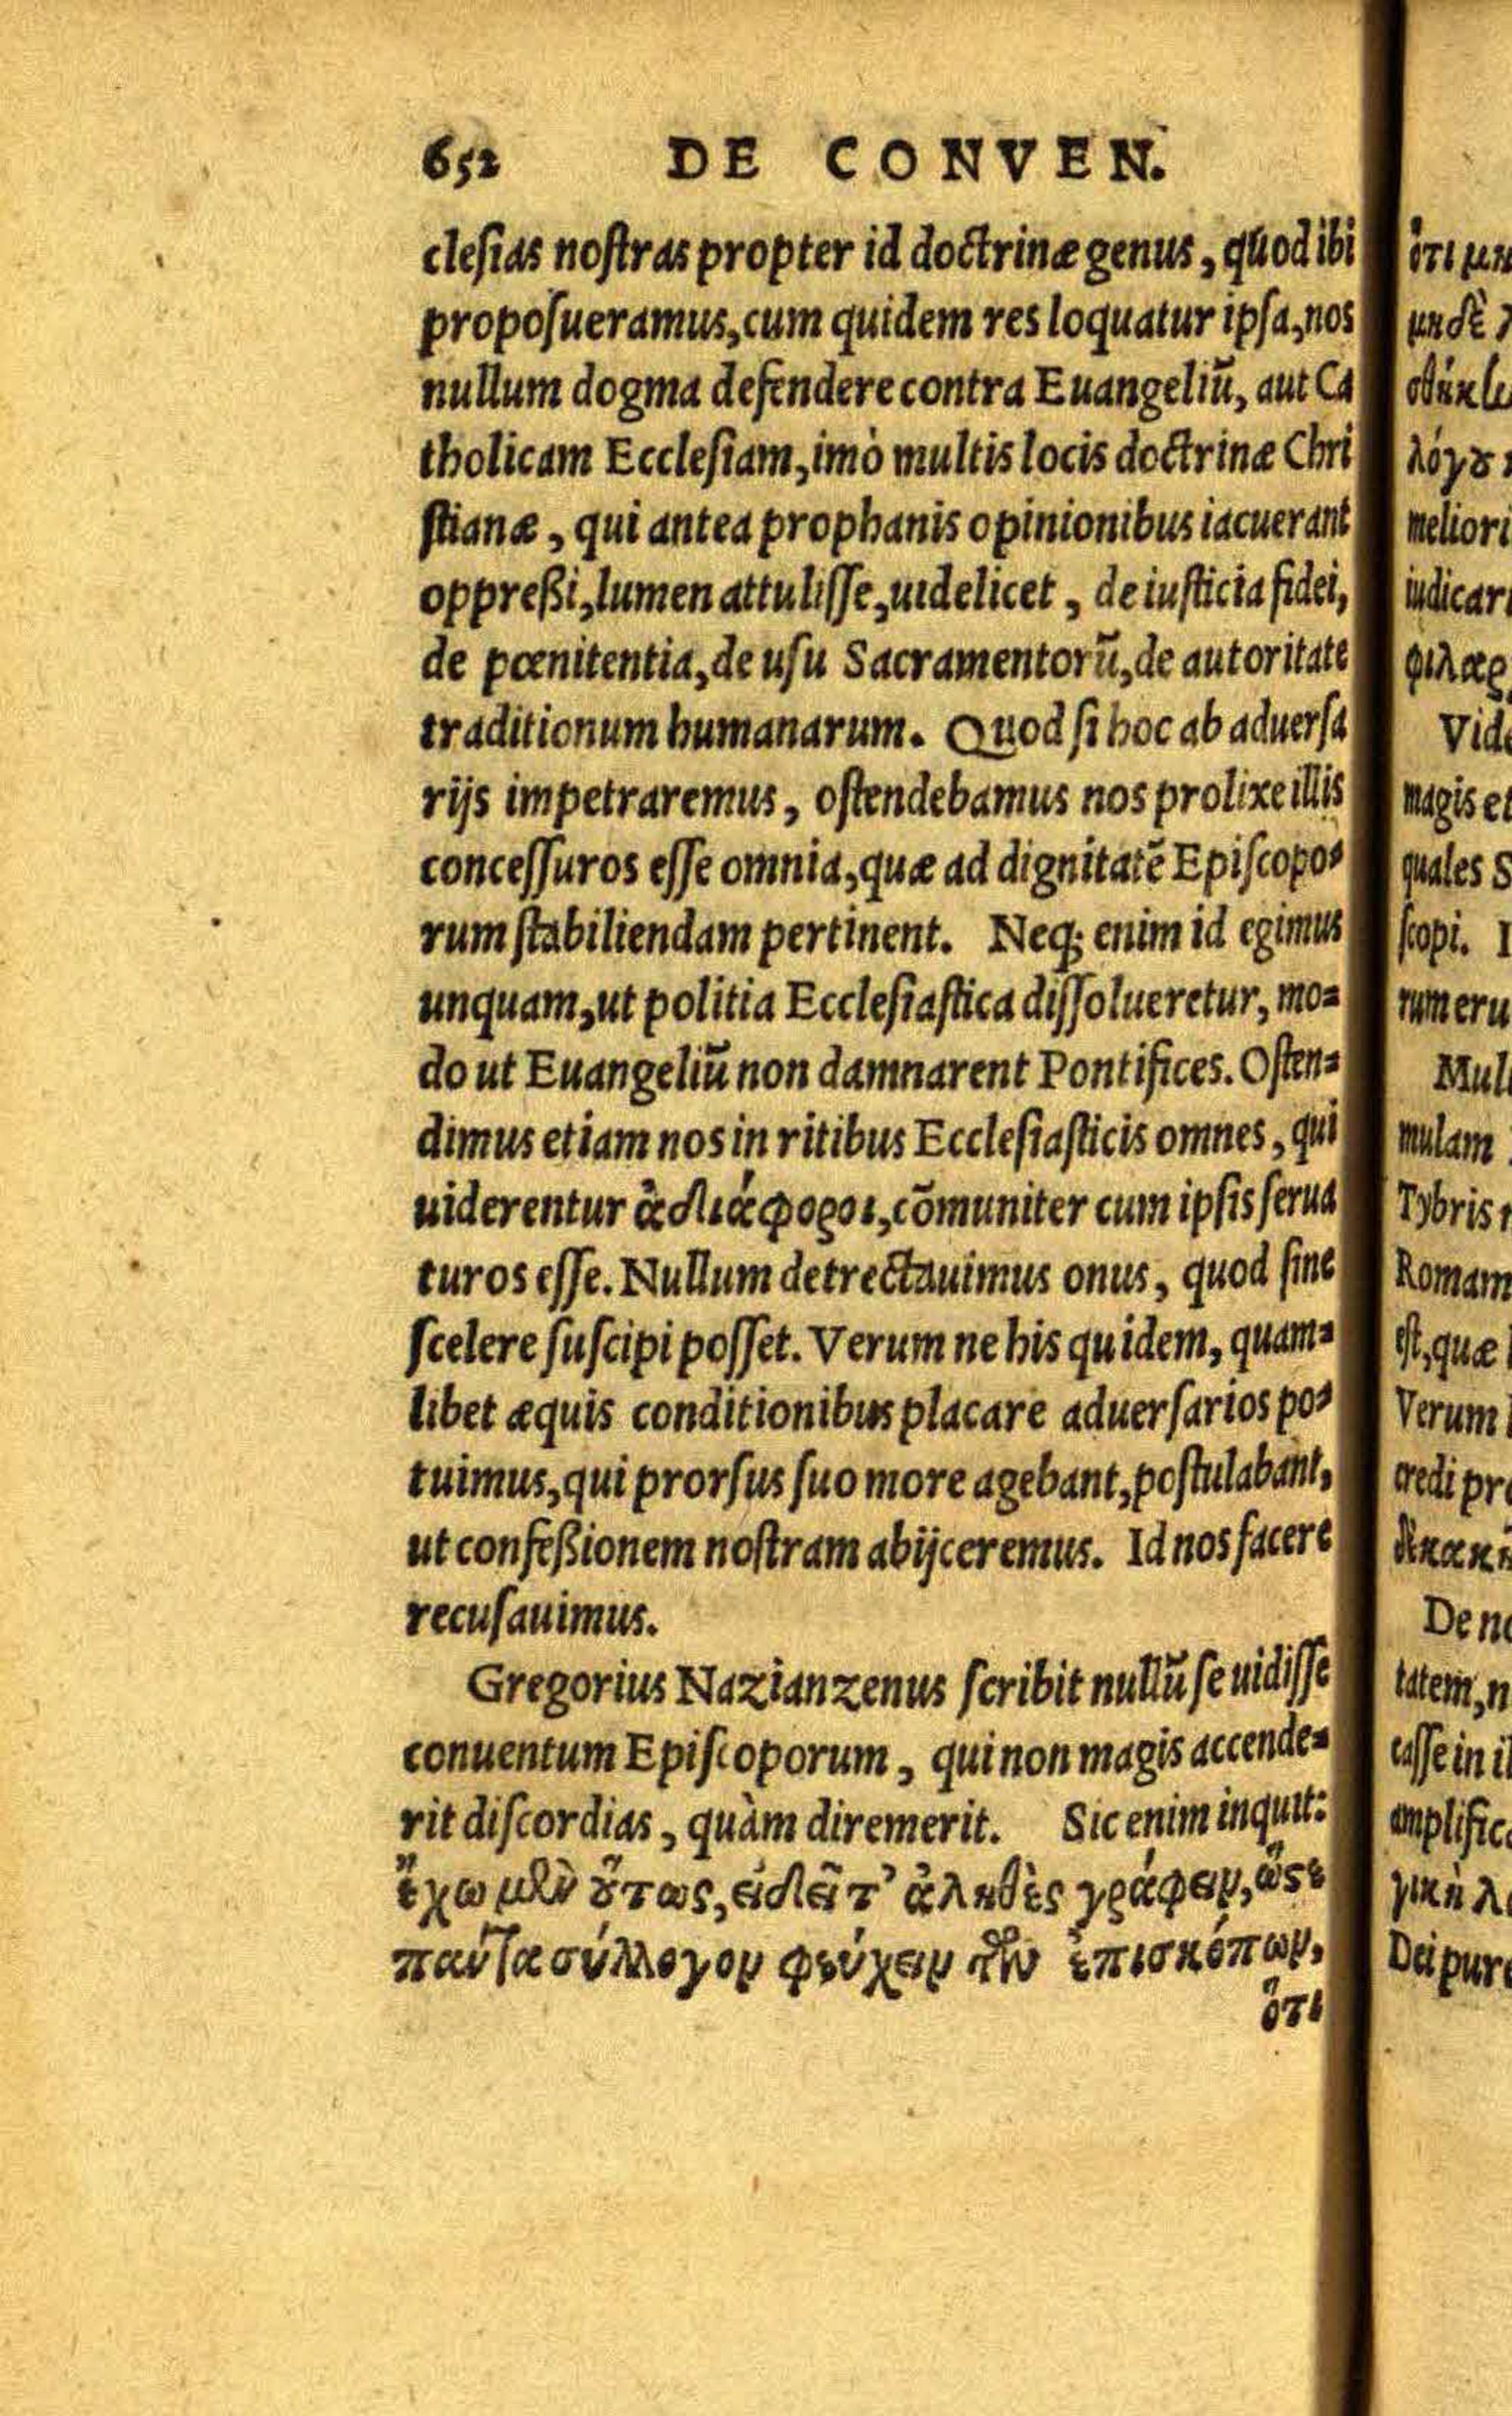 652 DE CONVEN.
clesias nostras propter id doctrinæ genus, quod ibi
proposueramus, cum quidem res loquatur ipsa, nos
nullum dogma defendere contra Euangeliũ, aut Ca
tholicam Ecclesiam, imò multis locis doctrinæ Chri
stianæ, qui antea prophanis opinionibus iacuerant
oppreßi, lumen attulisse, uidelicet, de iusticia fidei,
de pœnitentia, de usu Sacramentorũ, de autoritate
traditionum humanarum. Quod si hoc ab aduersa
rijs impetraremus, ostendebamus nos prolixe illis
concessuros esse omnia, quæ ad dignitatẽ Episcopo-
rum stabiliendam pertinent. Neq; enim id egimus
unquam, ut politia Ecclesiastica dissolueretur, mo-
do ut Euangeliũ non damnarent Pontifices. Osten-
dimus etiam nos in ritibus Ecclesiasticis omnes, qui
uiderentur ἀδιάφοροι, cõmuniter cum ipsis serua
turos esse. Nullum detrectauimus onus, quod sine
scelere suscipi posset. Verum ne his quidem, quam-
libet æquis conditionibus placare aduersarios po-
tuimus, qui prorsus suo more agebant, postulabant,
ut confeßionem nostram abijceremus. Id nos facere
recusauimus.
Gregorius Nazianzenus scribit nullũ se uidisse
conuentum Episcoporum, qui non magis accende-
rit discordias, quàm diremerit. Sic enim inquit:
ἔχω μὲν ὅτως, εἰ δεῖ τ' ἀληθὲς γράφειν, ὥστε
πάντα σύλλογον φεύγειν τῶν ἐπισκόπων,
ὅτι
ὅτι
μηδὲ
λόγȣ
meliori
iudicar
φιλαρ
Vid
magis et
quales S
scopi. I
rum eru
Mul
mulam
Tybris
Romam
est, quæ
Verum
credi pr
De no
tatem, n
casse in il
amplific
γικὴ λ
Dei pur